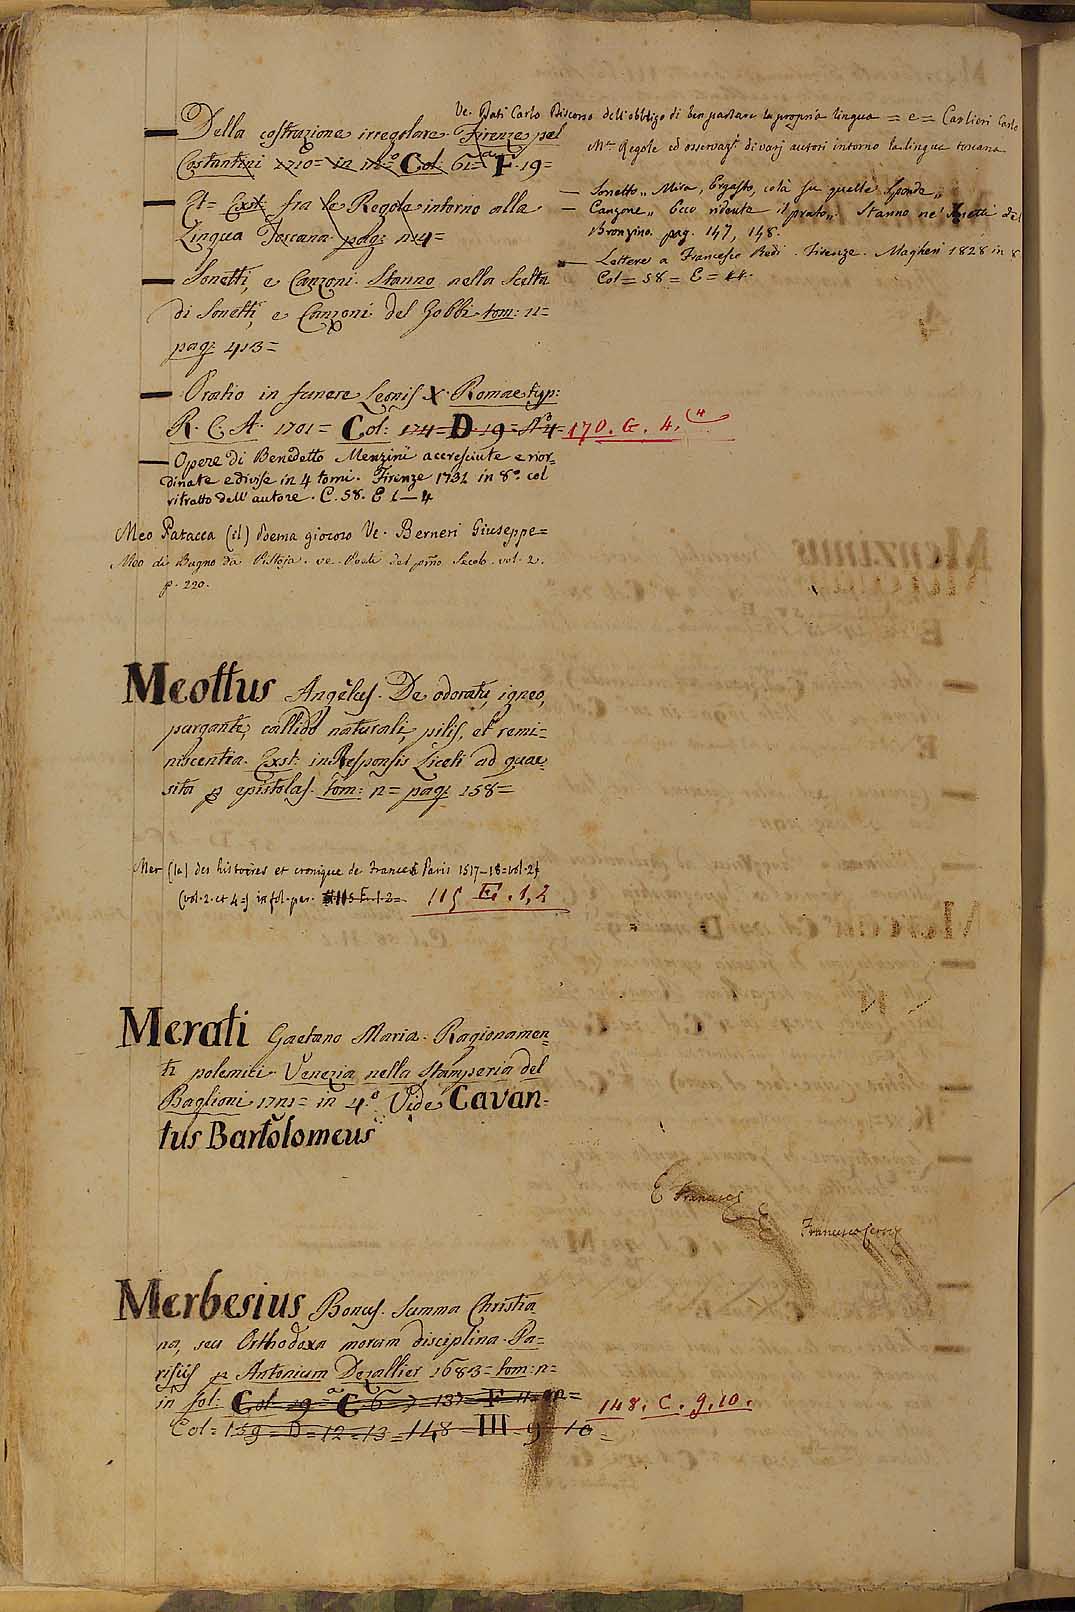 Ve. Dati Carlo Discorso dell'obbligo di ben parlare la propria lingua = e = Carlieri Carlo
Mª Regole ed osservazⁱ di varj autori intorno la lingua toscana
— Sonetto „ Mira, Ergasto, colà su quelle sponde „
— Canzone „ Ecco ridente il prato „ Stanno ne'
Bronzino. pag. 147, 148.
— Lettere a Francesco Redi. Firenze. Magheri 1828 in 8
Col = 58 = E =
— Della costrazione irregolare. Firenze pel
Costantini 1710= in 12º Col: 61= F. 19=
— Et= Ext: fra le Regole intorno alla
Lingua Toscana. pag: 114=
— Sonetti, e Canzoni. Stanno nella Scelta
di Sonetti, e Canzoni del Gobbi tom: 11=
pag: 413=
— Oratio in funere Leonis X. Romae typ:
R. C. A. 1701= Col: 174= D. 19= Nº 4= 170. G. 4. (4
— Opere di Benedetto Menzini accresciute e rior-
dinate e divise in 4 tomi. Firenze 1731 in 8º col
ritratto dell' autore. C. 58. E 1—4
Meo Patacca (il) Poema giocoso Ve. Berneri Giuseppe=
Meo di Bugno da Pistoja. ve. Poeti del pmo Secolo. vol. 2.
p. 220.
Meottus Angelus. De odoratu, igneo,
purgante, callido naturali, pilis, et remi=
niscentia. Ext: in Responsis Liceti ad quae-
sita p epistolas. tom: 11= pag: 158=
Mer (la) des histoires et cronique de France Paris 1517–18=vol. 2
(vol. 2. et 4=) in fol. per. 115 E. 1. 2=. 115 E. 1, 2
Merati Gaetano Maria. Ragionamen=
ti polemici. Venezia nella Stamperia del
Baglioni 1721= in 4º Vide Cavan-
tus Bartolomeus
E Francesc
E Francesco
Merbesius Bonus. Summa Christia-
na, seu Orthodoxa morum disciplina. Pa=
risiis p Antonium Dezallier 1683= tom: 11=
in fol: Col: 19= C. 137= F 148. C. 9. 10.
Col= 159= D=12=13=148 III 9 10=